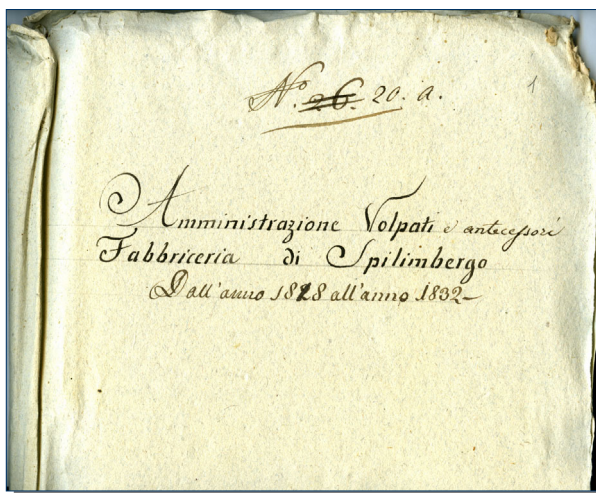 1
N.º 26. 20. a.
Amministrazione Volpati e antecessori
Fabbriceria di Spilimbergo
Dall'anno 1828 all'anno 1832-